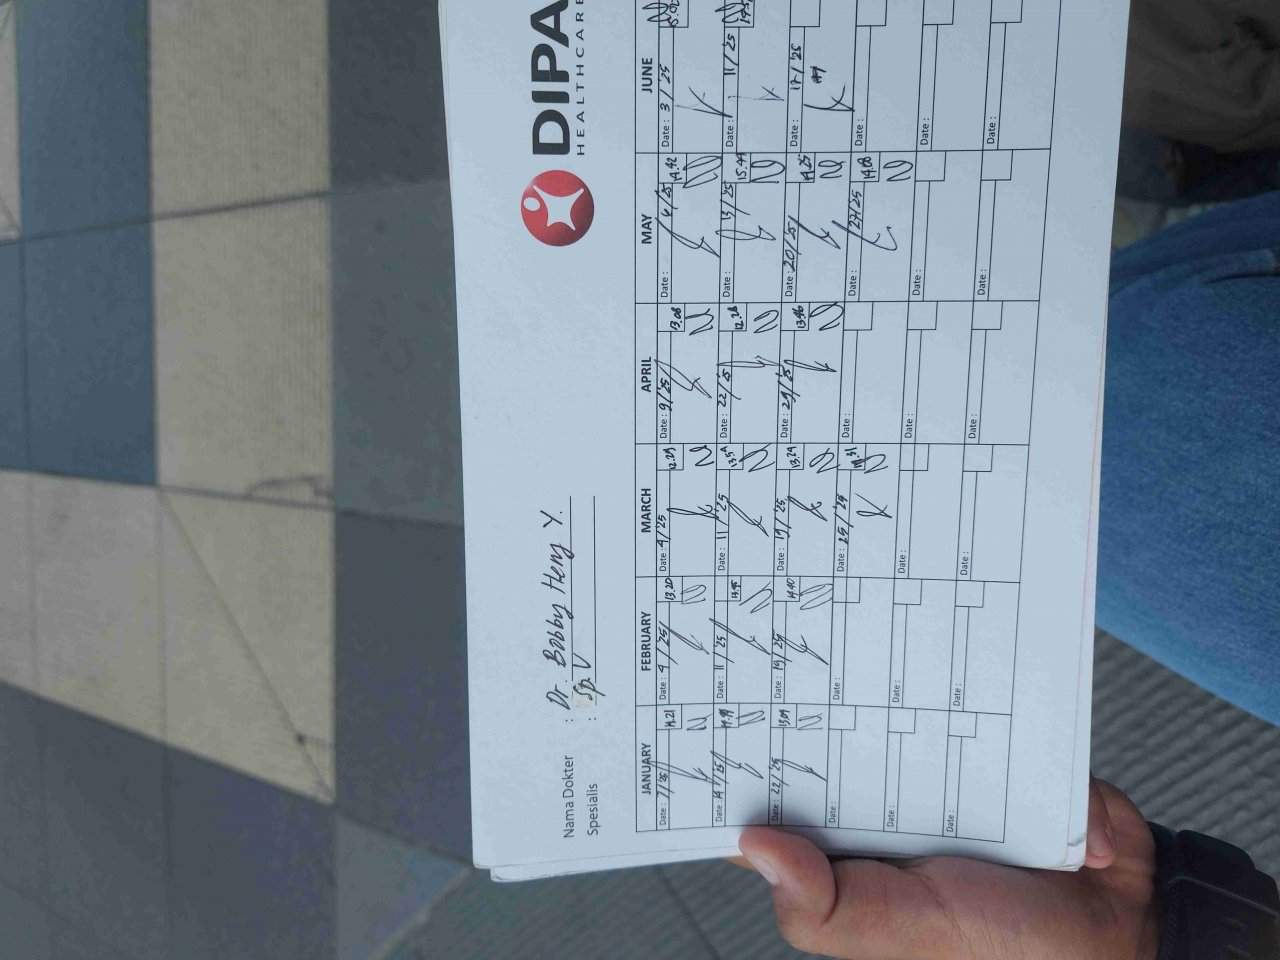 DIPA
HEALTHCARE
Nama Dokter : Dr. Bobby Hery Y.
Spesialis : Sp. V
JANUARY FEBRUARY MARCH APRIL MAY JUNE
Date: 7/25 14.21 Date: 4/25 13.20 Date: 4/25 12.29 Date: 9/25 13.08 Date: 6/25 14.42 Date: 3/25
Date: 14/25 Date: 11/25 13.45 Date: 11/25 13.54 Date: 22/25 12.28 Date: 13/25 15.44 Date: 11/25
Date: 22/25 13.09 Date: 19/25 14.40 Date: 19/25 13.29 Date: 29/25 13.46 Date: 20/25 14.25 Date: 17/25
Date: Date: Date: 25/25 Date: Date: 27/25 14.08 Date:
Date: Date: Date: Date: Date: Date:
Date: Date: Date: Date: Date: Date: